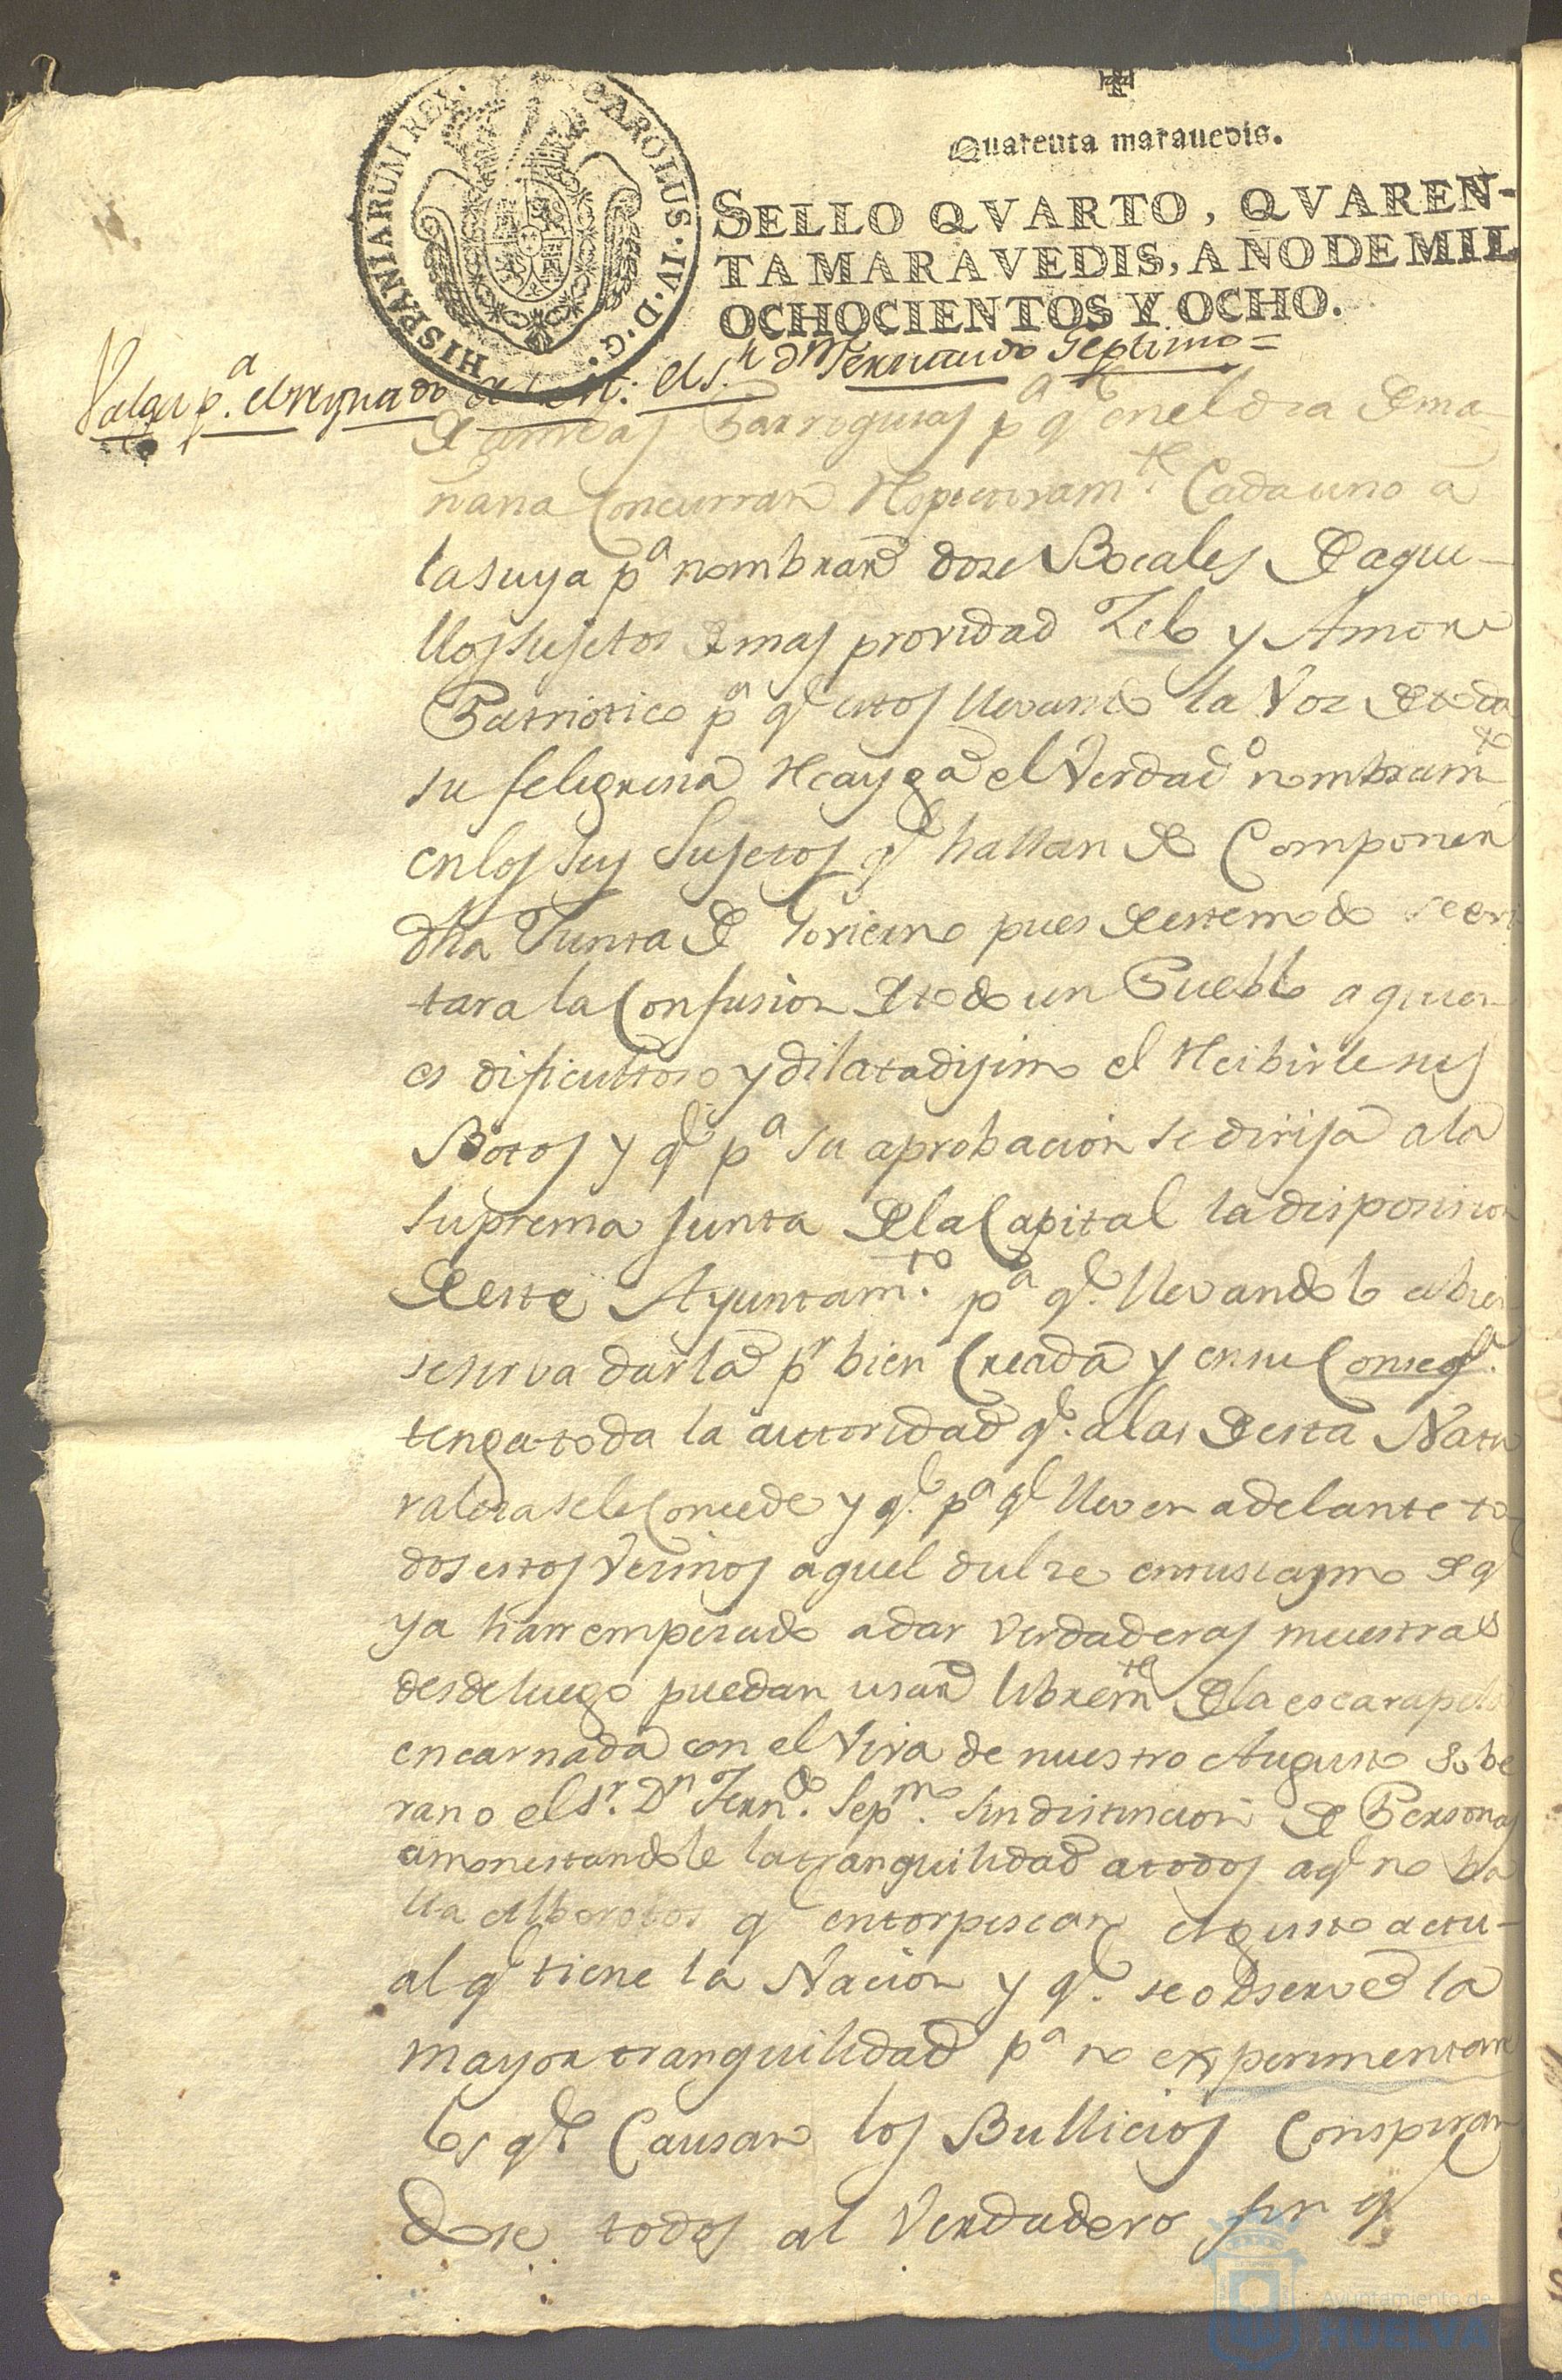 HISPANIARUM REX. CAROLUS·IV·D·G·
Quarenta maravedis.
SELLO QVARTO, QVAREN-
TA MARAVEDIS, AÑO DE MIL
OCHOCIENTOS Y OCHO.
Valga pª. el reynado el Sr. dn Fernando Septimo=
De ambas Parroquias pª q en el dia De ma-
ñana Concurran Respectivamte. Cada uno a
la suya pª nombrar doze Bocales De aque-
llos sujetos De mas providad Zelo y Amor
Patriotico pª q estos llevando la Voz De toda
su feligresia Recayga el Verdadº nombramto
en los seys Sujetos q hallan De Componer
dha Junta De Govierno pues De este modo se evi
tara la Confusion De todo un Pueblo a quien
es dificultoso y dilatadisimo el Recibirle sus
Botos y q pª su aprobacion se dirija a la
Suprema Junta De la Capital la disposicion
De este Ayuntamto. pª q. llevandolo a bien
se sirva darla pr bien Creada y en su Conseqª.
tenga toda la autoridad q. a las De esta Natu
raleza se le Concede y q. pª q lleven adelante to-
dos estos Vecinos aquel dulze entusiasmo De q
ya han empezado a dar verdaderas muestras
desde luego puedan usar libremte De la escarapela
encarnada con el Viva de nuestro Augusto Sobe
rano el Sr. Dn Ferndo. Sepmo. Sin distincion De Personas
amonestandole la tranquilidad a todos a q no ha
lla Alborotos q entorpescan el gusto actu-
al q tiene la Nacion y q. se observe la
mayor tranquilidad pª no experimentar
los q Causan los Bullicios Conspiran
dose todos al Verdadero fin q
Ayuntamiento de
HUELVA